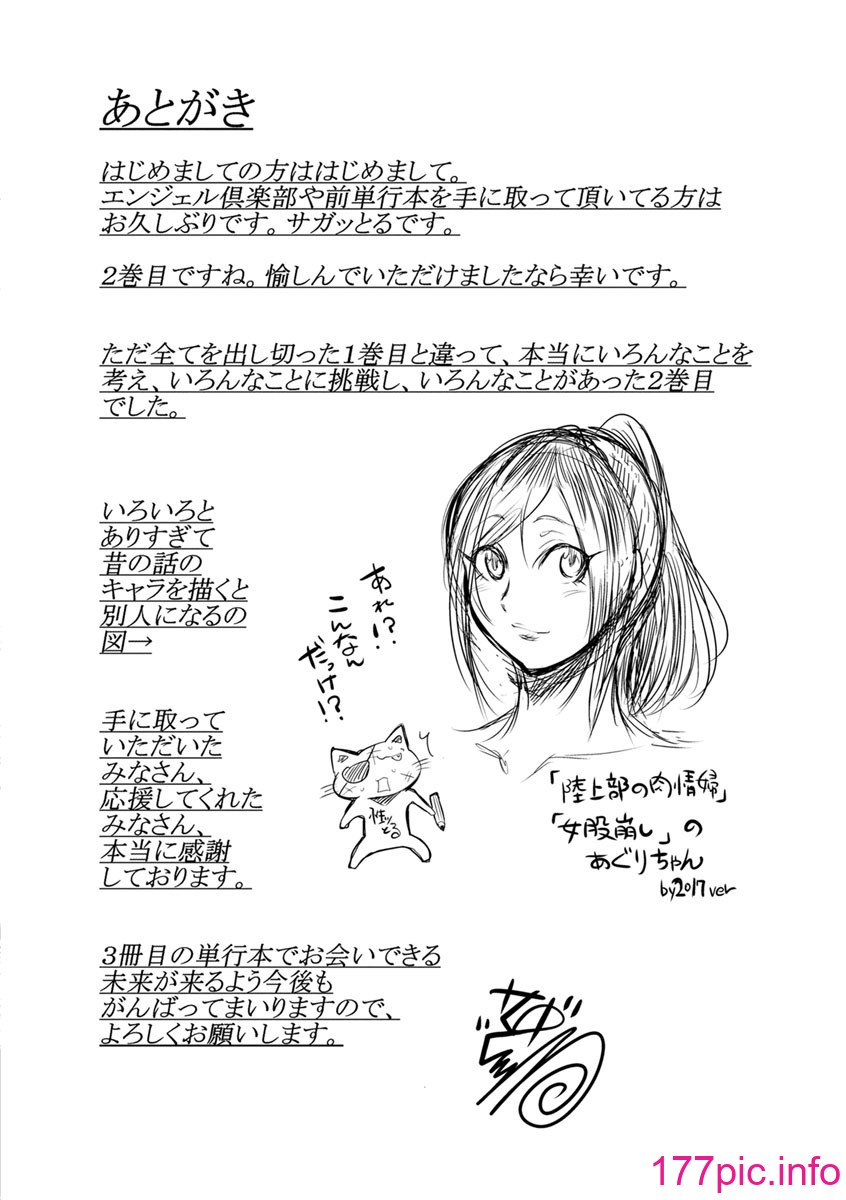 あとがき
はじめましての方ははじめまして。
エンジェル倶楽部や前単行本を手に取って頂いてる方は
お久しぶりです。サガッとるです。
2巻目ですね。愉しんでいただけましたなら幸いです。
ただ全てを出し切った1巻目と違って、本当にいろんなことを
考え、いろんなことに挑戦し、いろんなことがあった2巻目
でした。
いろいろと
ありすぎて
昔の話の
キャラを描くと
別人になるの
図→
あれ!?
こんなん
だっけ!?
性ッ
とる
「陸上部の肉情婦」
「女股崩し」の
あぐりちゃん
by2017ver
手に取って
いただいた
みなさん、
応援してくれた
みなさん、
本当に感謝
しております。
3冊目の単行本でお会いできる
未来が来るよう今後も
がんばってまいりますので、
よろしくお願いします。
177pic.info